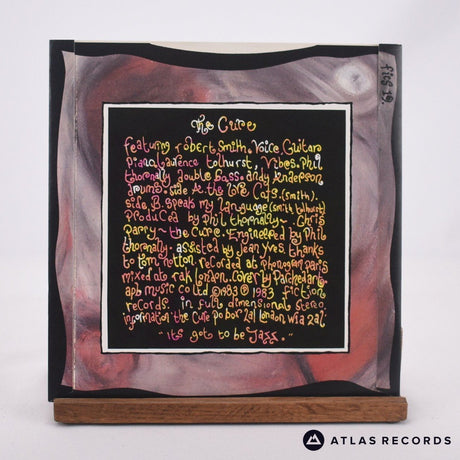 The Cure
featuring robert Smith. Voice. Guitar
piano. Laurence tolhurst, Vibes. Phil
thornally double bass. andy Anderson
drums. side A. the love Cats. (smith).
side B. speak my language (smith tolhurst)
Produced by phil thornally~. Chris
Parry~ the Cure. Engineered by Phil
thornally. assisted by Jean Yves. thanks
to tom notton recorded at phonogram paris
mixed at rak london. cover by Parched art
apb music co ltd ©1983 ℗ 1983 fiction
records. in full dimensional stereo
information the Cure po box 2al london w1a 2al
~ its got to be Jazz. ~
fics 19.
ATLAS RECORDS